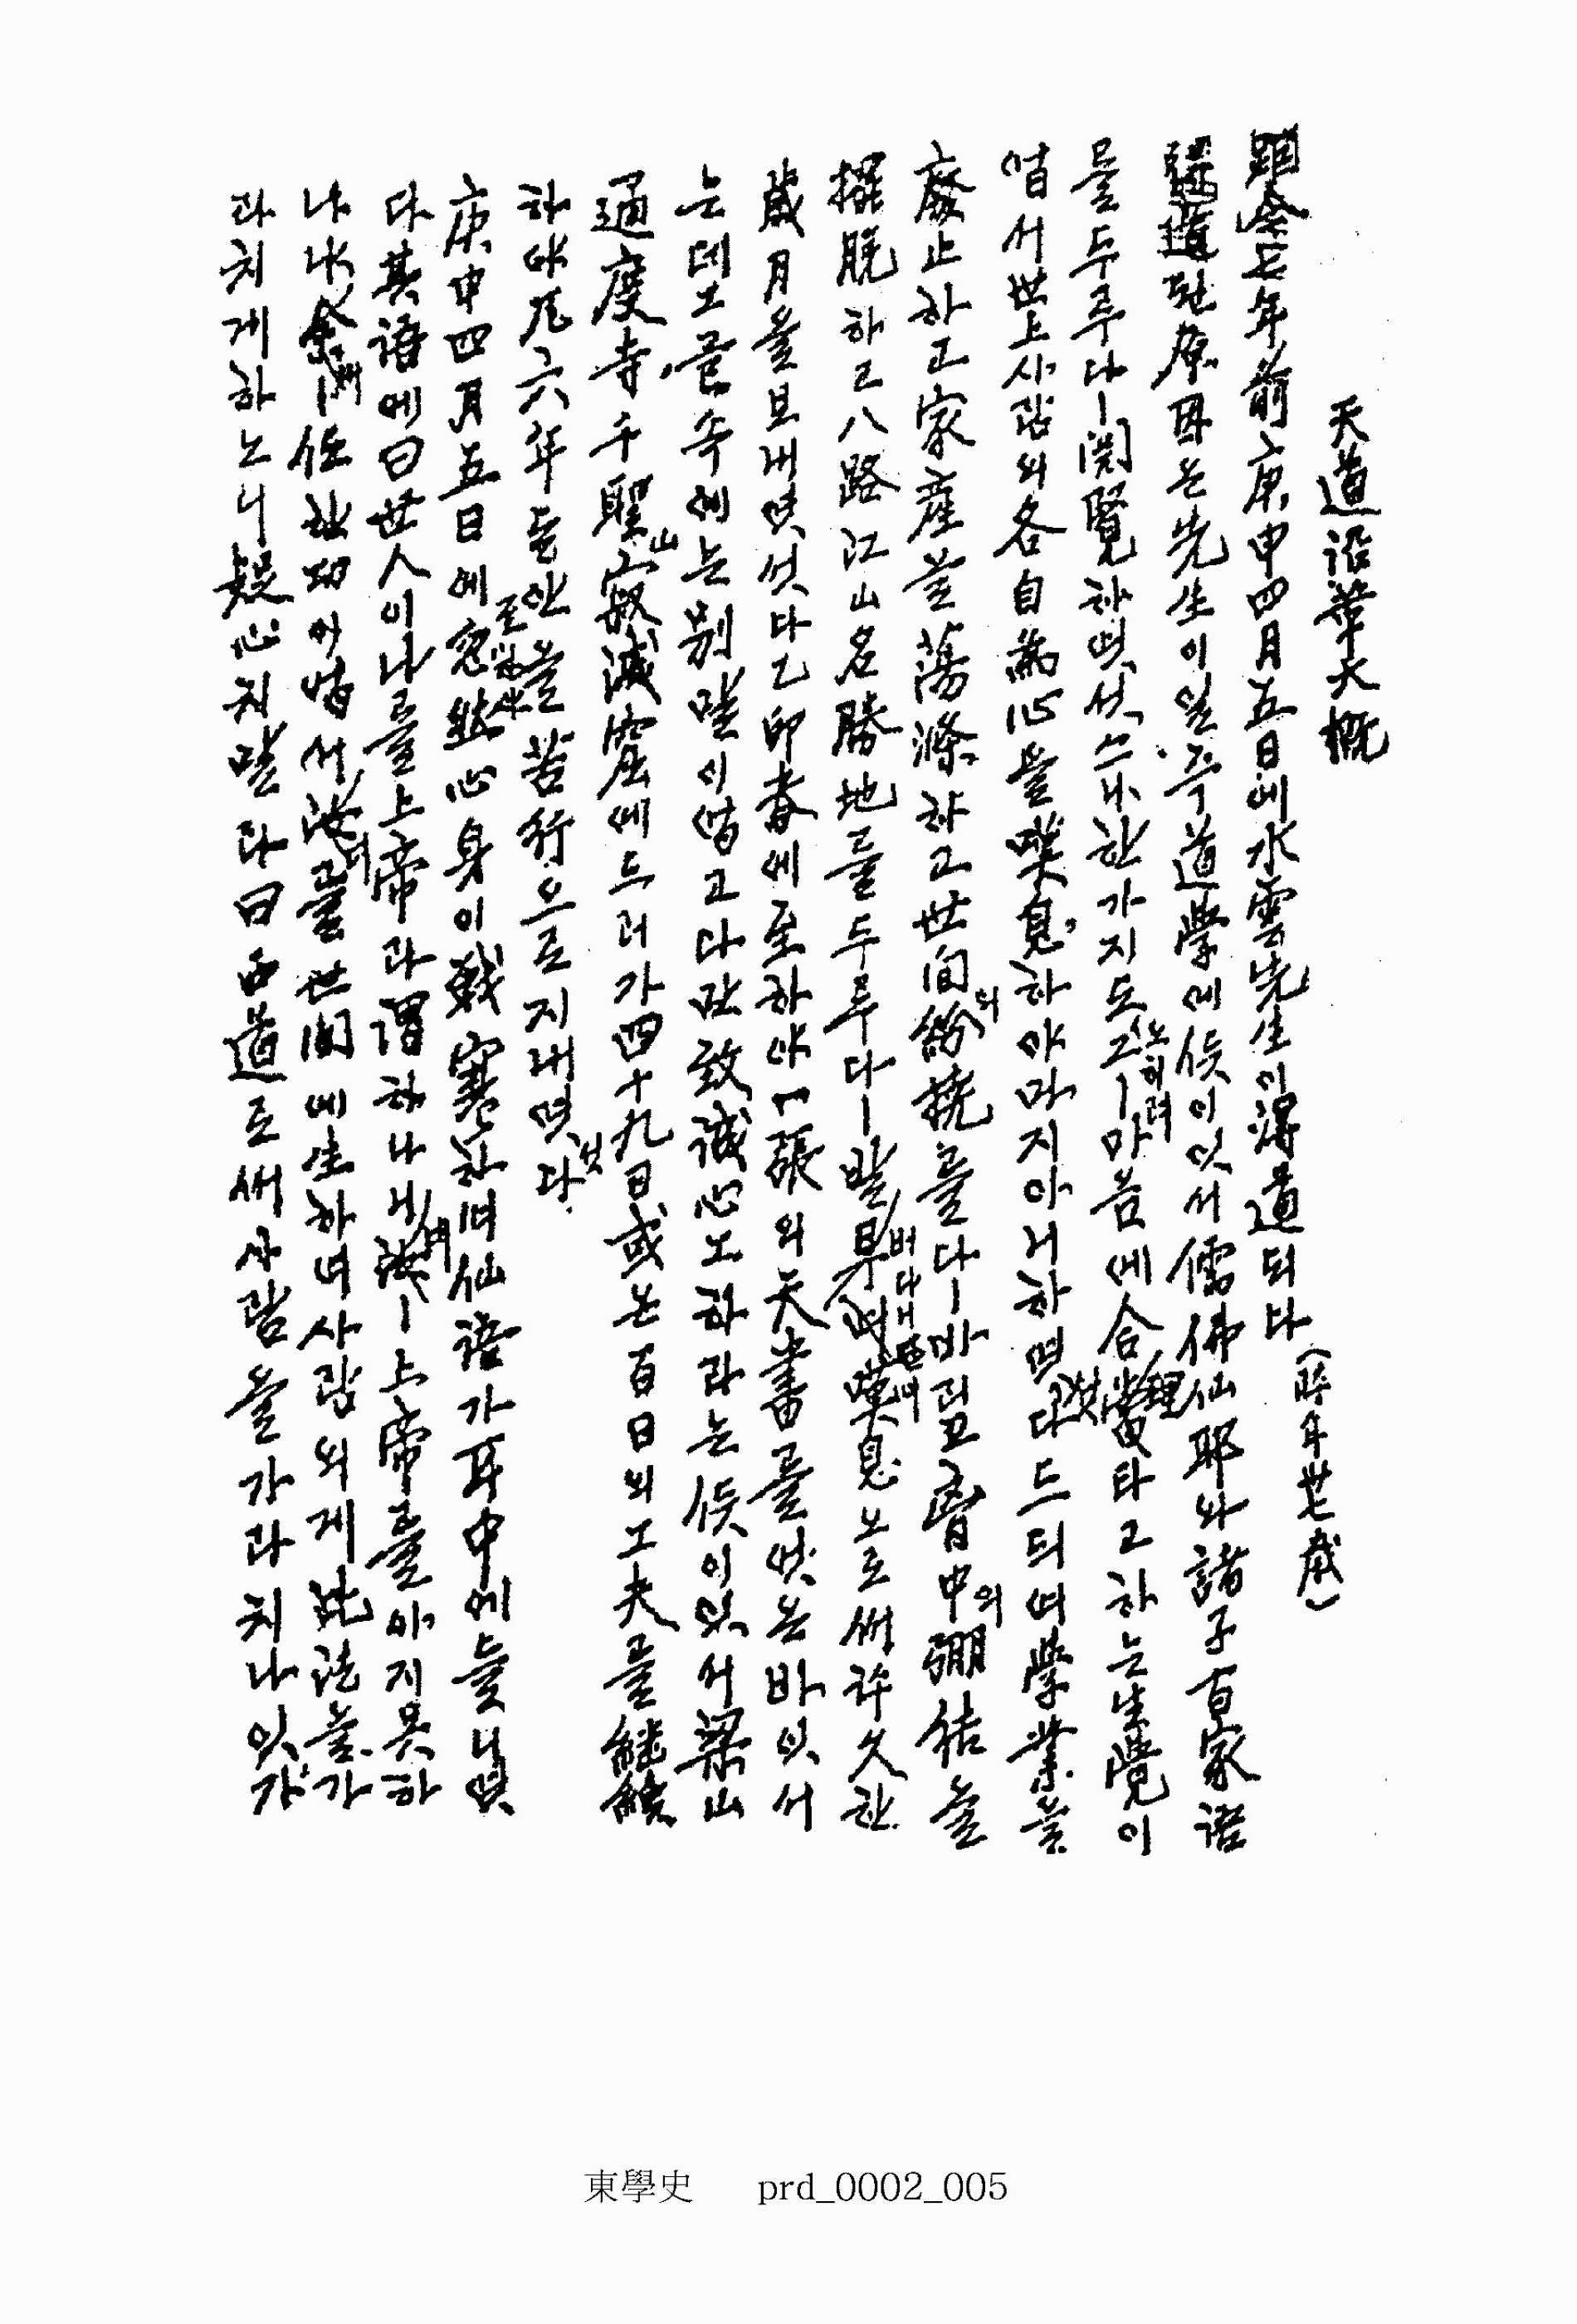 天道沿革大概
距今七年前庚申四月五日에水雲先生이得道되다(時年卅七歲)
得道된原因은先生이일즉道學에뜻이잇서儒佛仙耶와諸子百家語
를두루다ㅡ閱覽하엿섯스나한가지도그ㅡ마음에合當타고하는生覺이
업서世上사람의各自爲心을嘆息하야마지아니하엿다드되여學業을
廢止하고家產을蕩滌하고世間의紛撓를다ㅡ바리고胸中의弸結을
擺脫하고八路江山名勝地를두루다ㅡ발보며嘆息노로써許久한
歲月을보내엿섯다乙卯春에至하야一張의天書를엇은바잇서
는데그글속에는別말이업고다만致誠心工하라는뜻이잇서梁山
通度寺,千聖山寂滅窟에드러가四十九日或은百日의工夫를繼續
하야凡六年동안을苦行으로지내엿다.
庚申四月五日에忽然心身이戰寒하며仙語가耳中에들니엿
다其語에曰世人이나를上帝라謂하나니汝ㅡ上帝를아지못하
나냐余ㅡ任社功이업서汝를世間에生하여사람의게此法을가
라치게하노니疑心치말라曰西道로써사람을가라치나잇가
東學史 prd_0002_005